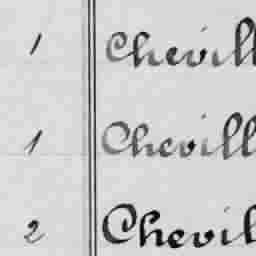 1 Chevill
1 Chevill
2 Chevil